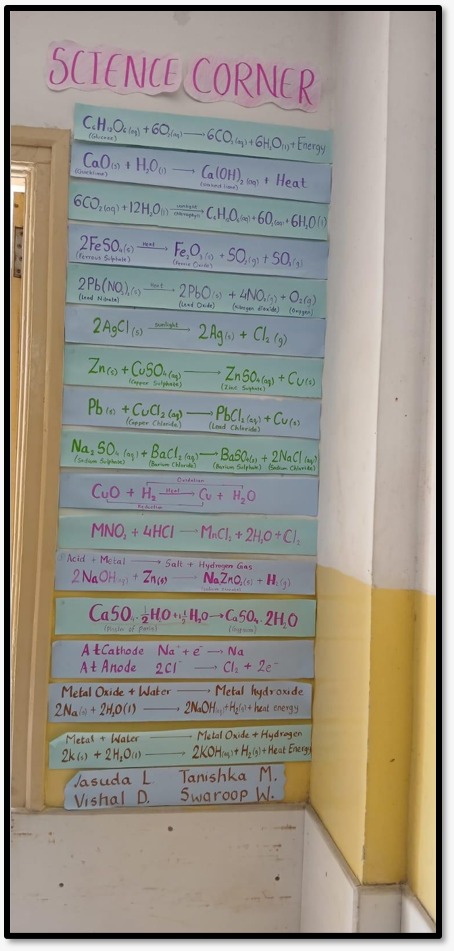 SCIENCE CORNER
C₆H₁₂O₆(aq) + 6O₂(aq) → 6CO₂(aq) + 6H₂O(l) + Energy
(Glucose)
CaO(s) + H₂O(l) → Ca(OH)₂(aq) + Heat
(Quicklime) (Slaked lime)
6CO₂(aq) + 12H₂O(l) sunlight chlorophyll → C₆H₁₂O₆(aq) + 6O₂(aq) + 6H₂O(l)
2FeSO₄(s) heat → Fe₂O₃(s) + SO₂(g) + SO₃(g)
(Ferrous Sulphate) (Ferric Oxide)
2Pb(NO₃)₂(s) heat → 2PbO(s) + 4NO₂(g) + O₂(g)
(Lead Nitrate) (Lead Oxide) (Nitrogen dioxide) (Oxygen)
2AgCl(s) sunlight → 2Ag(s) + Cl₂(g)
Zn(s) + CuSO₄(aq) → ZnSO₄(aq) + Cu(s)
(Copper Sulphate) (Zinc Sulphate)
Pb(s) + CuCl₂(aq) → PbCl₂(aq) + Cu(s)
(Copper Chloride) (Lead Chloride)
Na₂SO₄(aq) + BaCl₂(aq) → BaSO₄(s) + 2NaCl(aq)
(Sodium Sulphate) (Barium Chloride) (Barium Sulphate) (Sodium Chloride)
Oxidation
CuO + H₂ Heat → Cu + H₂O
Reduction
MNO₂ + 4HCl → MnCl₂ + 2H₂O + Cl₂
Acid + Metal → Salt + Hydrogen Gas
2NaOH(aq) + Zn(s) → NaZnO₂(s) + H₂(g)
CaSO₄.½H₂O + 1½H₂O → CaSO₄.2H₂O
(Plaster of paris) (Gypsum)
At Cathode Na⁺ + e⁻ → Na
At Anode 2Cl⁻ → Cl₂ + 2e⁻
Metal Oxide + Water → Metal hydroxide
2Na(s) + 2H₂O(l) → 2NaOH(aq) + H₂(g) + heat energy
Metal + Water → Metal Oxide + Hydrogen
2k(s) + 2H₂O(l) → 2KOH(aq) + H₂(g) + Heat Energy
Jasuda L Tanishka M.
Vishal D. Swaroop W.